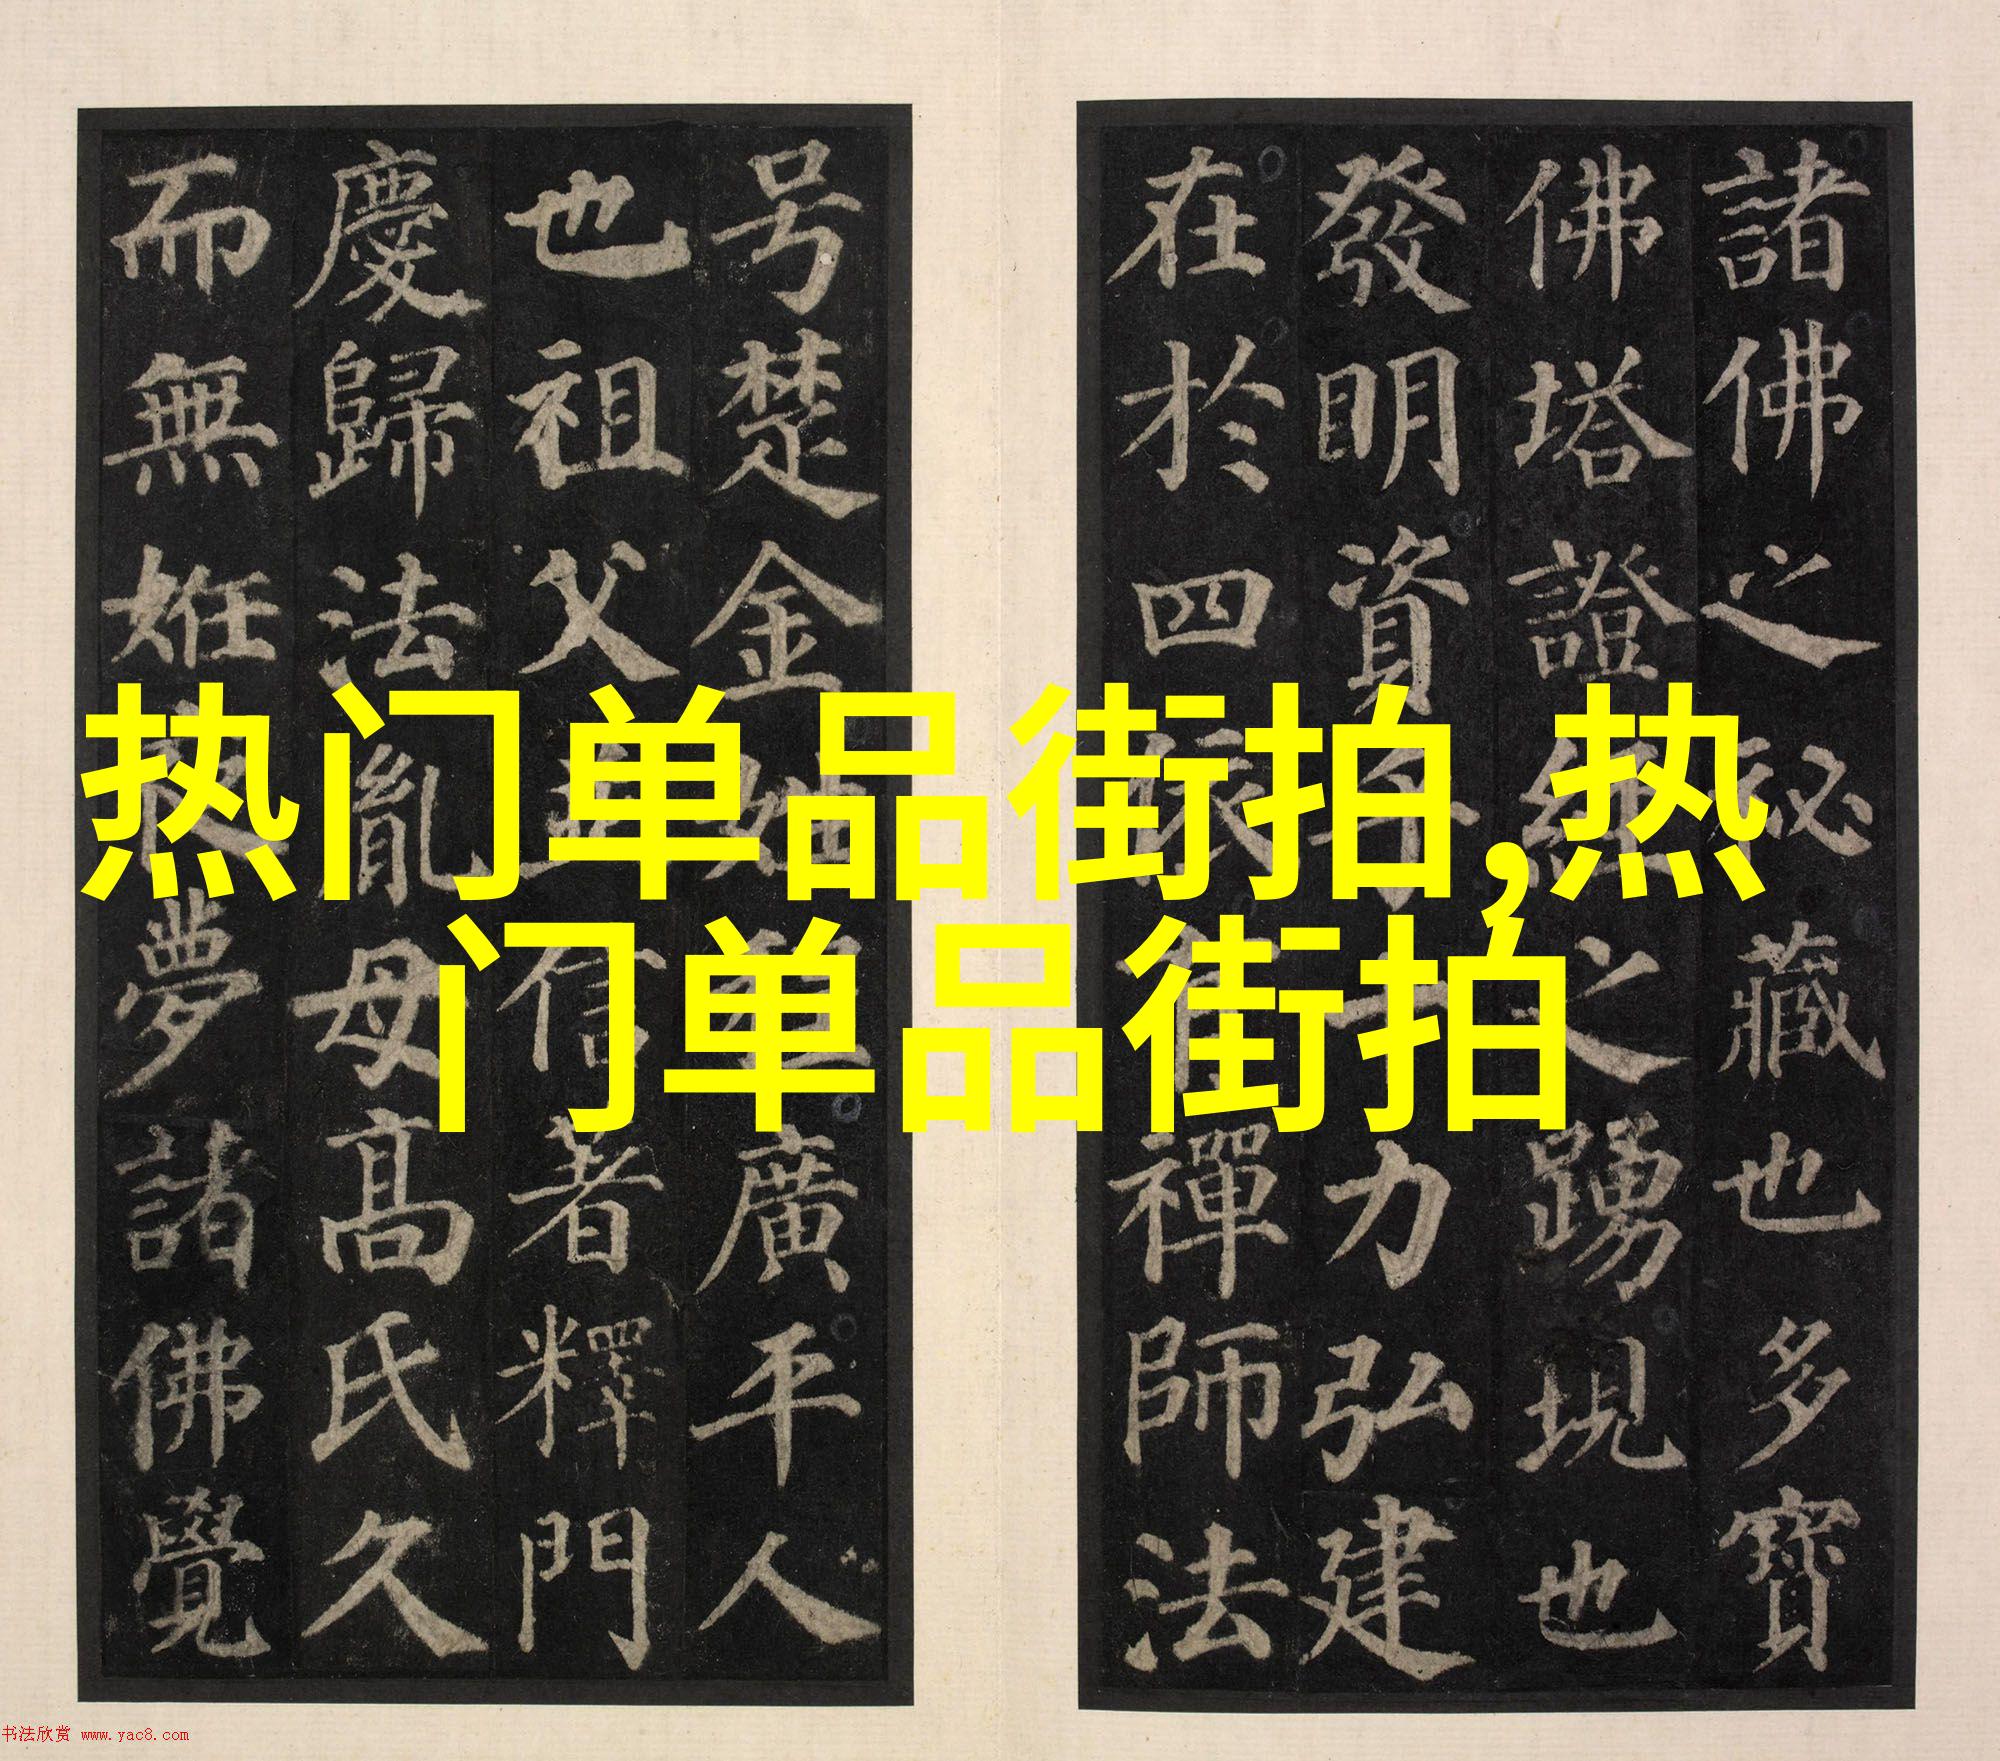 諸佛之秘藏也多寶
佛塔證經之踴現也
發明資乎十力弘建
在於四依有禪師法
号楚金姓程廣平人
也祖父並信著釋門
慶歸法胤母髙氏久
而無姙夜夢諸佛覺
热门单品街拍,热
门单品街拍
书法欣赏 www.yac8.com